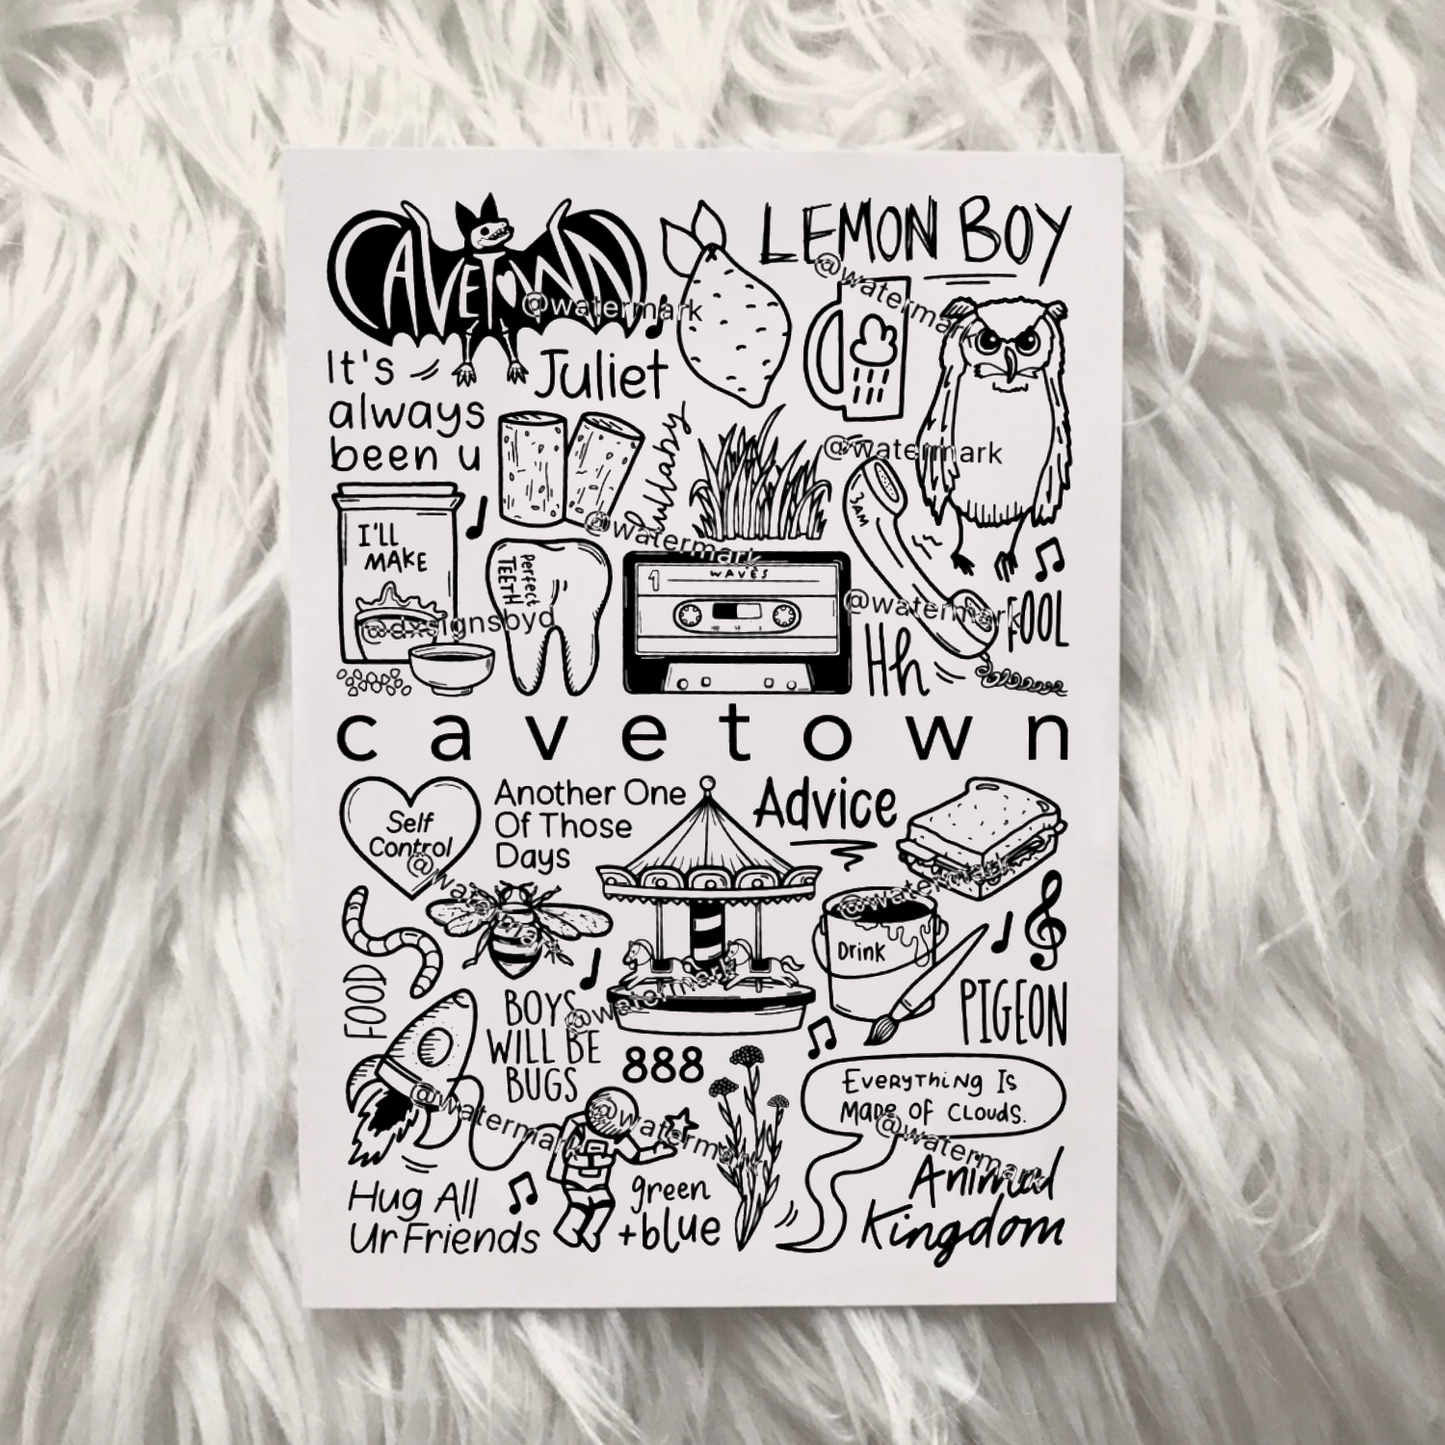 CAVETOWN
LEMON BOY
@watermark
@watermark
It's
always
been u
Juliet
lullaby
@watermark
@watermark
I'LL
MAKE
Perfect
TEETH
@dxsignsbyd
1
WAVES
3AM
@watermark
FOOL
Hh
cavetown
Self
Control
@watermark
Another One
Of Those
Days
Advice
@watermark
Drink
FOOD
BOYS
WILL BE
BUGS
@watermark
888
PIGEON
EVERYTHING IS
MADE OF CLOUDS.
@watermark
@watermark
@watermark
Hug All
Ur Friends
green
+blue
Animal
Kingdom